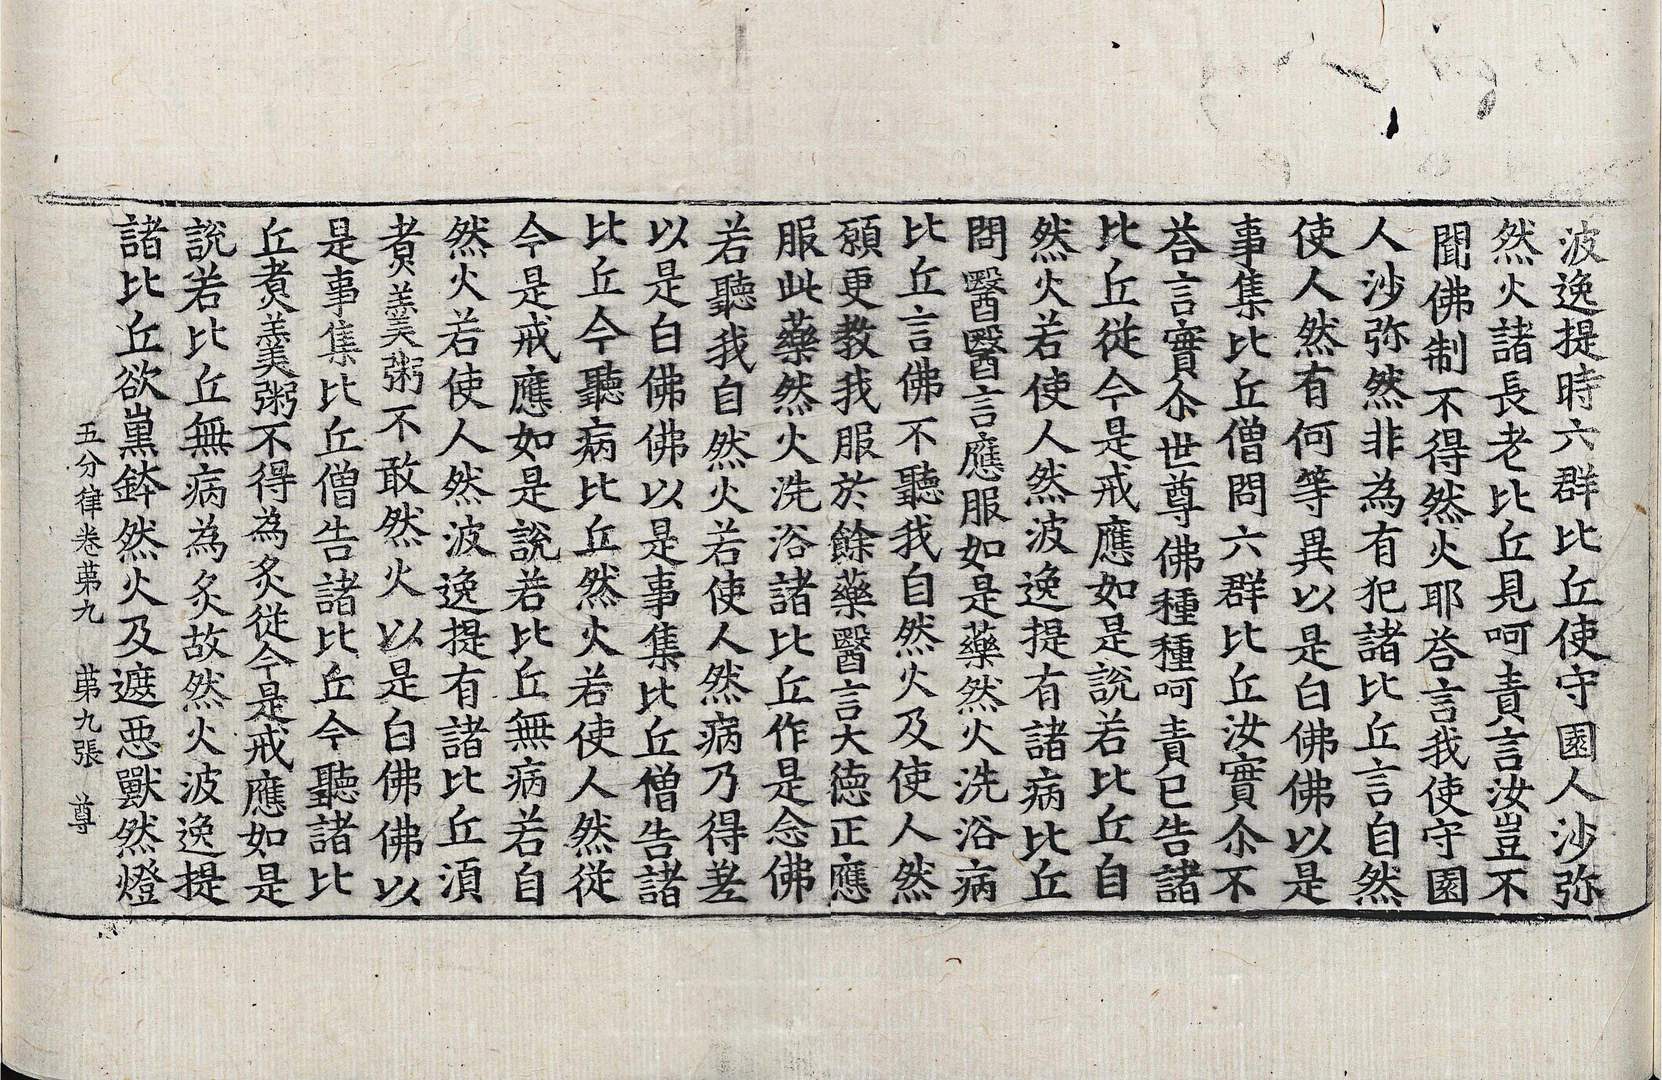 波逸提時六群比丘使守園人沙弥
然火諸長老比丘見呵責言汝豈不
聞佛制不得然火耶荅言我使守園
人沙弥然非為有犯諸比丘言自然
使人然有何等異以是白佛佛以是
事集比丘僧問六群比丘汝實尒不
荅言實尒世尊佛種種呵責已告諸
比丘從今是戒應如是說若比丘自
然火若使人然波逸提有諸病比丘
問醫醫言應服如是藥然火洗浴病
比丘言佛不聽我自然火及使人然
願更教我服於餘藥醫言大德正應
服此藥然火洗浴諸比丘作是念佛
若聽我自然火若使人然病乃得差
以是白佛佛以是事集比丘僧告諸
比丘今聽病比丘然火若使人然從
今是戒應如是說若比丘無病若自
然火若使人然波逸提有諸比丘須
煑羹粥不敢然火以是白佛佛以
是事集比丘僧告諸比丘今聽諸比
丘煑羹粥不得為炙從今是戒應如是
說若比丘無病為炙故然火波逸提
諸比丘欲熏鉢然火及遮惡獸然燈
五分律卷苐九　苐九張　尊